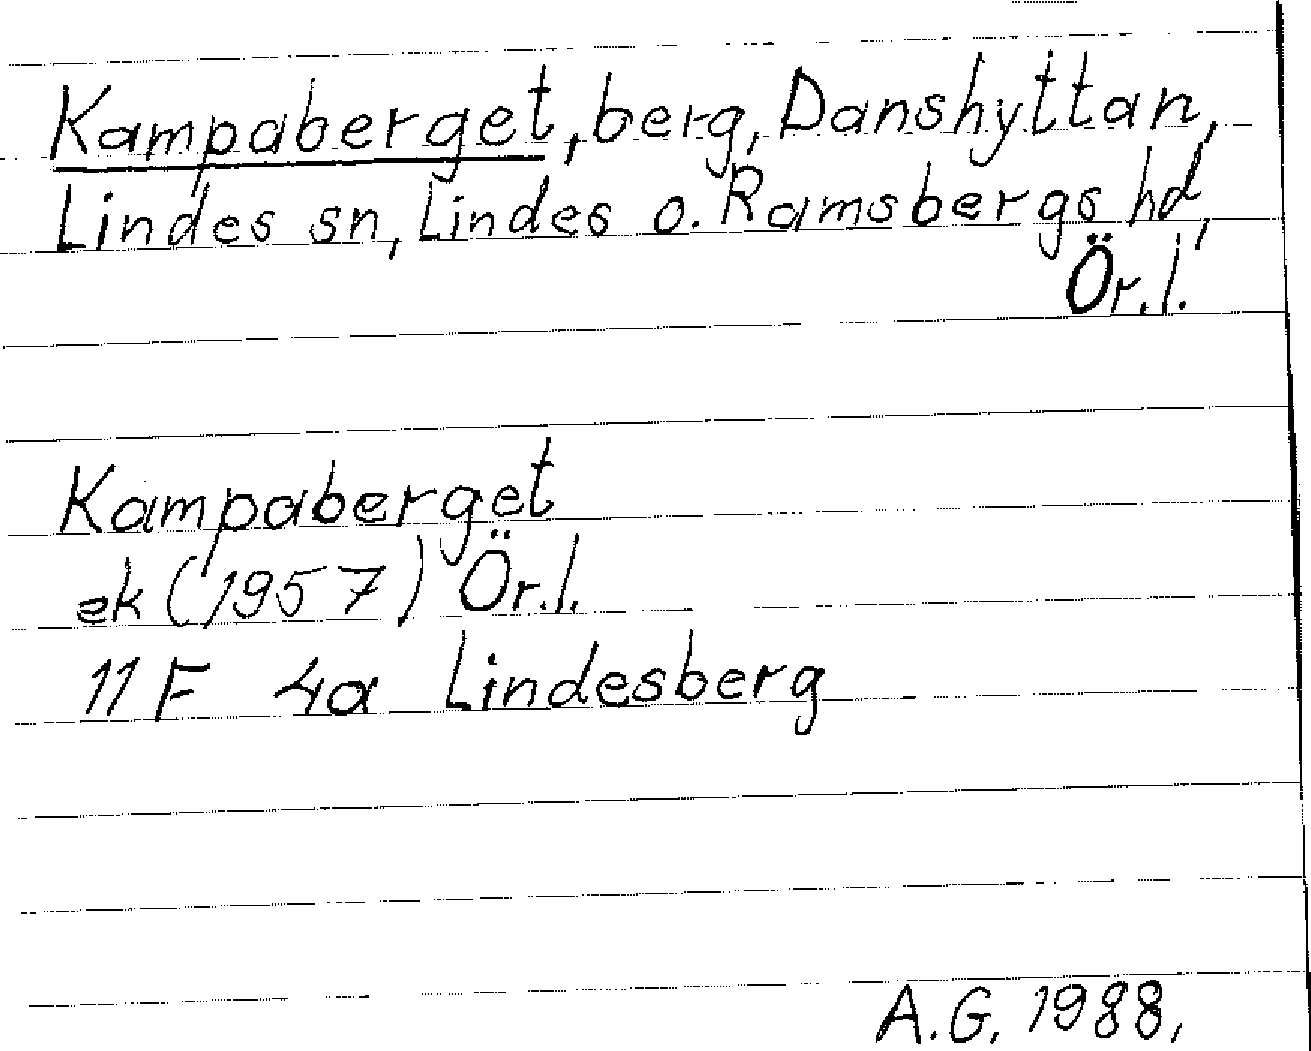 Kampaberget, berg, Danshyttan,
Lindes sn, Lindes o. Ramsbergs hd,
Ör.l.
Kampaberget
ek (1957) Ör.l.
11F 4a Lindesberg
A.G. 1988.